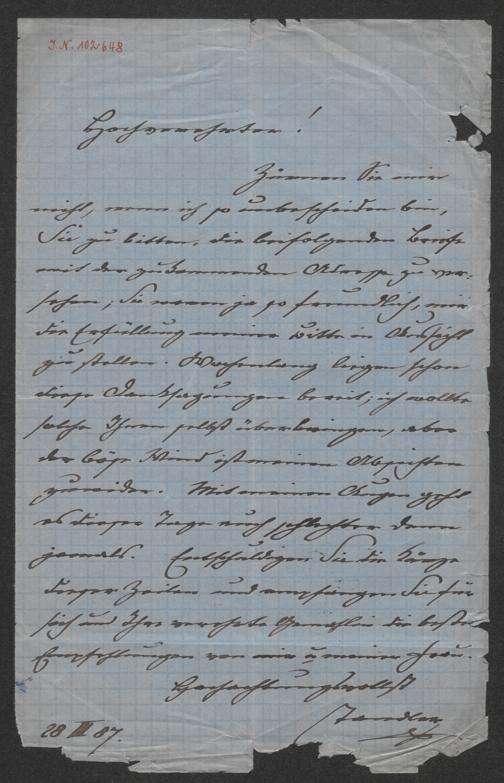 J. N. 102648
Hochverehrter!
Zürnen Sie mir
nicht, wenn ich so unbescheiden bin,
Sie zu bitten, die beifolgenden Briefe
mit der zukommenden Adresse zu ver-
sehen; Sie waren ja so freundlich, mir
die Erfüllung meiner Bitte in Aussicht
zu stellen. Wochenlang liegen schon
diese Danksagungen bereit; ich wollte
solche Ihnen selbst überbringen, aber
der böse Wind ist meinen Absichten
zuwider. Mit meinen Augen geht
es dieser Tage noch schlechter denn
jemals. Entschuldigen Sie die Kürze
dieser Zeilen und empfangen Sie für
sich und Ihre verehrte Gemahlin die besten
Empfehlungen von mir u meiner Frau.
Hochachtungsvollst
28 III 87.